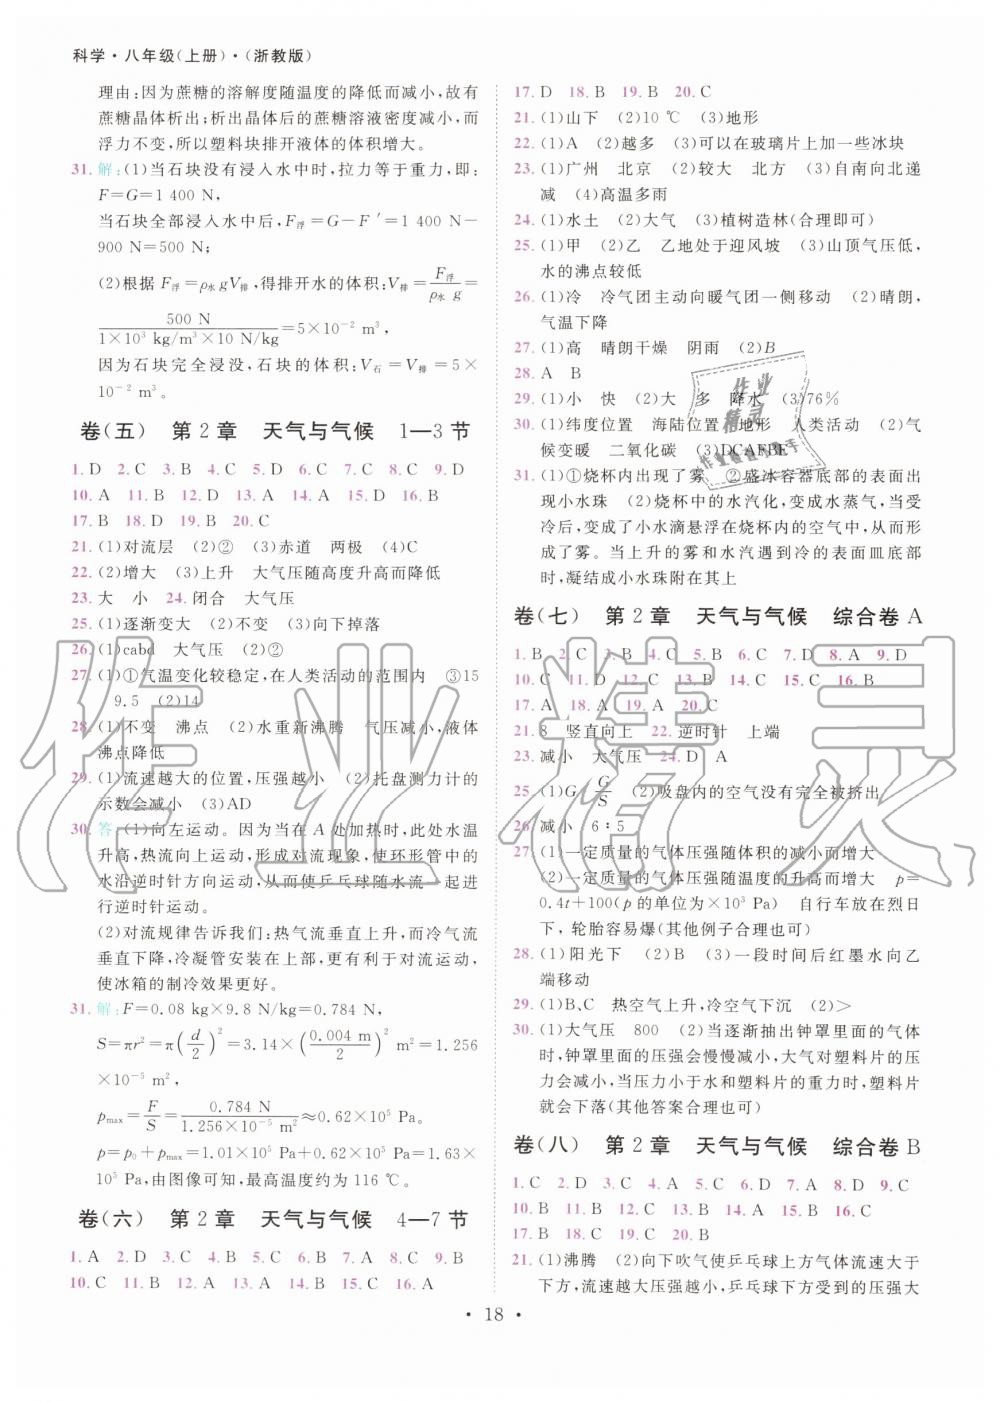 科学·八年级(上册)·(浙教版)
理由:因为蔗糖的溶解度随温度的降低而减小,故有
蔗糖晶体析出;析出晶体后的蔗糖密度减小,而
浮力不变,所以塑料块排开液体的体积增大。
31. 解:(1)当石块没有浸入水中时,拉力等于重力,即:
F=G=1 400 N,
当石块全部浸入水中后,F浮=G-F′=1 400 N-
900 N=500 N;
(2)根据 F浮=ρ水gV排,得排开水的体积:V排=F浮/(ρ水 g)=
500 N/(1×10³ kg/m³×10 N/kg)=5×10⁻² m³,
因为石块完全浸没,石块的体积:V石=V排=5×
10⁻² m³。
卷(五) 第2章 天气与气候 1—3节
1. D 2. C 3. B 4. B 5. C 6. C 7. C 8. C 9. D
10. A 11. B 12. D 13. A 14. A 15. D 16. B
17. B 18. D 19. B 20. C
21. (1)对流层 (2)② (3)赤道 两极 (4)C
22. (2)增大 (3)上升 大气压随高度升高而降低
23. 大 小 24. 闭合 大气压
25. (1)逐渐变大 (2)不变 (3)向下掉落
26. (1)cabd 大气压 (2)②
27. (1)①气温变化较稳定,在人类活动的范围内 ③15
9.5 (2)14
28. (1)不变 沸点 (2)水重新沸腾 气压减小,液体
沸点降低
29. (1)流速越大的位置,压强越小 (2)托盘测力计的
示数会减小 (3)AD
30. 答:(1)向左运动。因为当在 A 处加热时,此处水温
升高,热流向上运动,形成对流现象,使环形管中的
水沿逆时针方向运动,从而使乒乓球随水流一起进
行逆时针运动。
(2)对流规律告诉我们:热气流垂直上升,而冷气流
垂直下降,冷凝管安装在上部,更有利于对流运动,
使冰箱的制冷效果更好。
31. 解:F=0.08 kg×9.8 N/kg=0.784 N,
S=πr²=π(d/2)²=3.14×(0.004 m/2)² m²=1.256
×10⁻⁵ m²,
pmax=F/S=0.784 N/(1.256×10⁻⁵ m²)≈0.62×10⁵ Pa,
p=p₀+pmax=1.01×10⁵ Pa+0.62×10⁵ Pa=1.63×
10⁵ Pa,由图像可知,最高温度约为116 ℃。
卷(六) 第2章 天气与气候 4—7节
1. A 2. D 3. C 4. B 5. C 6. A 7. B 8. C 9. B
10. C 11. B 12. A 13. C 14. C 15. C 16. A
17. D 18. B 19. B 20. C
21. (1)山下 (2)10 ℃ (3)地形
22. (1)A (2)越多 (3)可以在玻璃片上加一些冰块
23. (1)广州 北京 (2)较大 北方 (3)自南向北递
减 (4)高温多雨
24. (1)水土 (2)大气 (3)植树造林(合理即可)
25. (1)甲 (2)乙 乙地处于迎风坡 (3)山顶气压低,
水的沸点较低
26. (1)冷 冷气团主动向暖气团一侧移动 (2)晴朗,
气温下降
27. (1)高 晴朗干燥 阴雨 (2)B
28. A B
29. (1)小 快 (2)大 多 降水 (3)76%
30. (1)纬度位置 海陆位置 地形 人类活动 (2)气
候变暖 二氧化碳 (3)DCAFBE
31. (1)①烧杯内出现了雾 ②盛冰容器底部的表面出
现小水珠 (2)烧杯中的水汽化,变成水蒸气,当受
冷后,变成了小水滴悬浮在烧杯内的空气中,从而形
成了雾。当上升的雾和水汽遇到冷的表面皿底部
时,凝结成小水珠附在其上
卷(七) 第2章 天气与气候 综合卷 A
1. B 2. C 3. B 4. B 5. C 6. C 7. D 8. A 9. D
10. C 11. D 12. C 13. B 14. C 15. C 16. B
17. A 18. A 19. A 20. C
21. 8 竖直向上 22. 逆时针 上端
23. 减小 大气压 24. D A
25. (1)G/S (2)吸盘内的空气没有完全被挤出
26. 减小 6∶5
27. (1)一定质量的气体压强随体积的减小而增大
(2)一定质量的气体压强随温度的升高而增大 p=
0.4t+100(p的单位为×10³ Pa) 自行车放在烈日
下,轮胎容易爆(其他例子合理也可)
28. (1)阳光下 (2)B (3)一段时间后红墨水向乙
端移动
29. (1)B、C 热空气上升,冷空气下沉 (2)>
30. (1)大气压 800 (2)当逐渐抽出钟罩里面的气体
时,钟罩里面的压强会慢慢减小,大气对塑料片的压
力会减小,当压力小于水和塑料片的重力时,塑料片
就会下落(其他答案合理也可)
卷(八) 第2章 天气与气候 综合卷 B
1. C 2. C 3. B 4. D 5. C 6. D 7. A 8. D 9. C
10. B 11. B 12. B 13. B 14. A 15. A 16. B
17. B 18. C 19. C 20. D
21. (1)沸腾 (2)向下吹气使乒乓球上方气体流速大于
下方,流速越大压强越小,乒乓球受到的压强差大
· 18 ·
作业精灵
作业
精灵